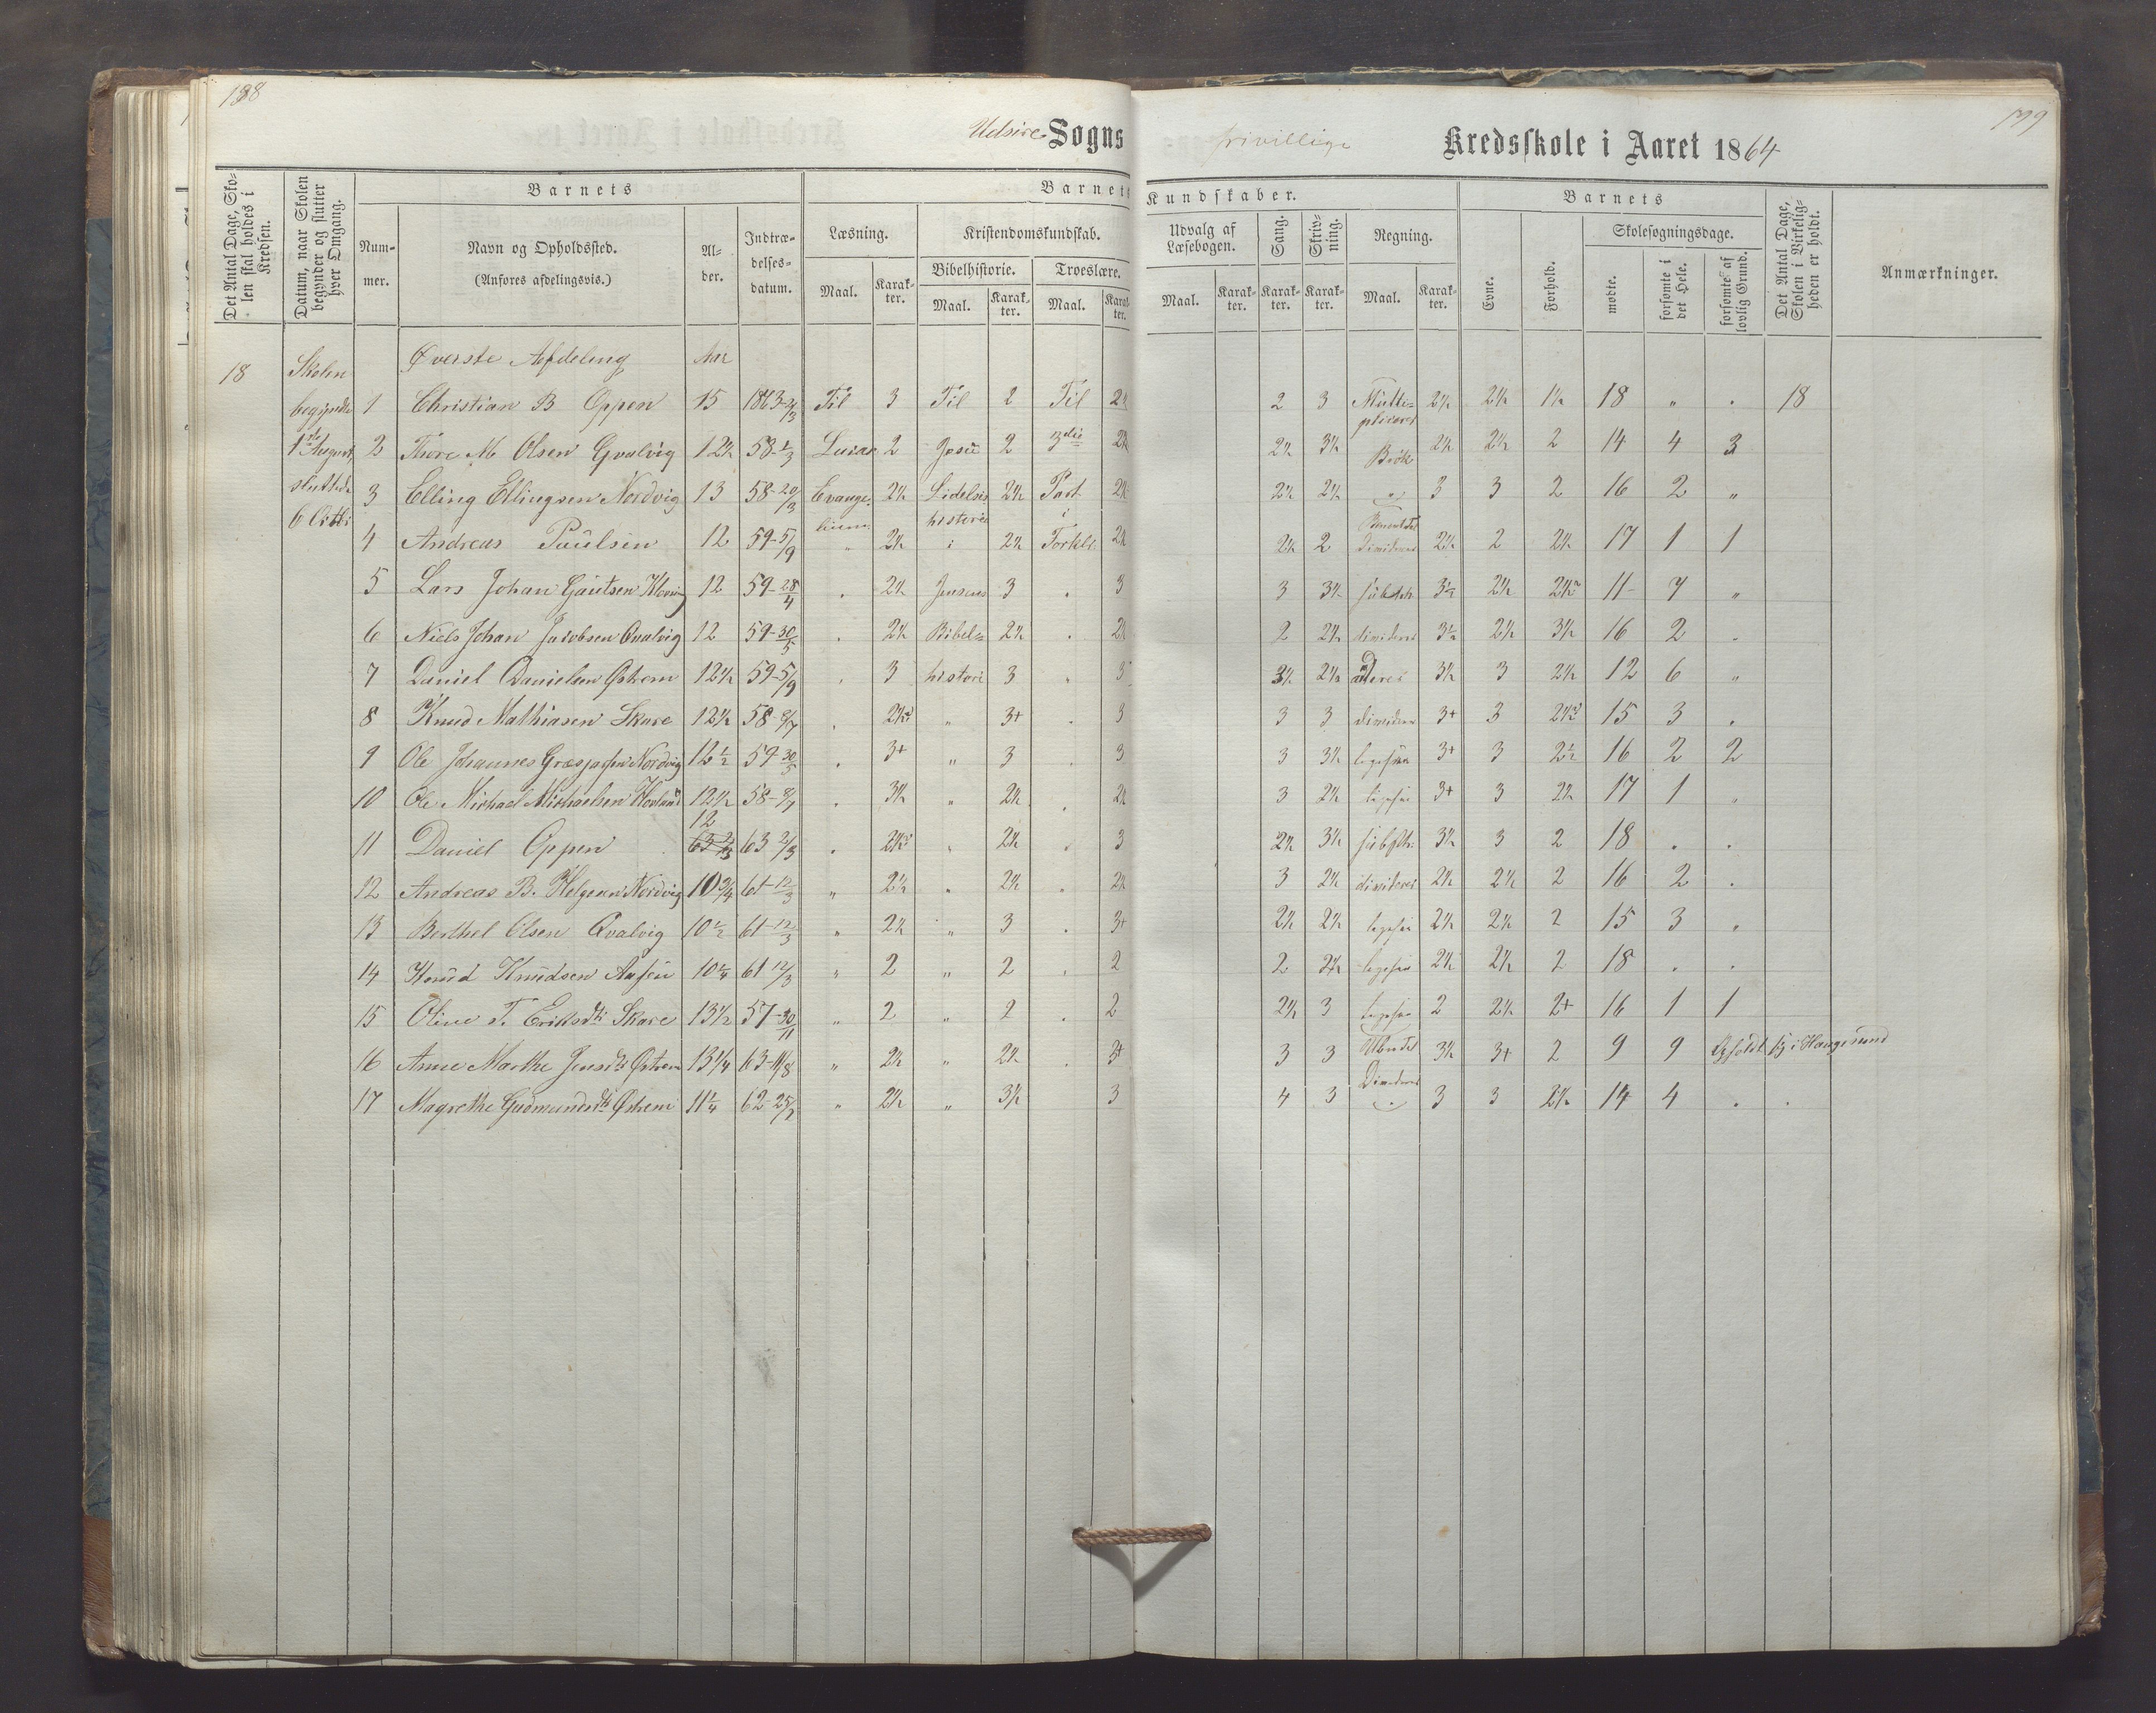 188
199
Udsire Sogns frivillige Kredsskole i Aaret 1864
Det Antal Dage, Skolen skal holdes i Kredsen.
Datum, naar Skolen begynder og slutter hver Omgang.
Barnets
Nummer.
Navn og Opholdssted.
(Anføres afdelingsvis.)
Alder.
Indtrædelsesdatum.
Barnets Kundskaber.
Læsning.
Maal. Karakter.
Kristendomskundskab.
Bibelhistorie. Troeslære.
Maal. Karakter. Maal. Karakter.
Udvalg af Læsebogen.
Maal. Karakter.
Sang. Karakter.
Skrivning. Karakter.
Regning.
Maal. Karakter.
Barnets
Evne.
Forhold.
Skolesøgningsdage.
mødte.
forsømte i det Hele.
forsømte af lovlig Grund.
Det Antal Dage, Skolen i Virkeligheden er holdt.
Anmærkninger.
18 Skolen begyndte 1ste August, sluttede 6 Octbr
Øverste Afdeling Aar
1 Christian B Oppen 15 1863-2/3 Til 3 Til 2 Til 2½ 2 3 Multipliceret 2½ 2½ 1½ 18 " . 18
2 Thore M Olsen Qvalvig 12½ 58-1/3 Lucas 2 Jesu 2 3die 2½ 2½ 3½ Brøk 2½ 2½ 2 14 4 3
3 Elling Ellingsen Nordvig 13 58-20/3 Evangelium 2½ Lidelses historie 2½ Part 2½ 2½ 2½ " 3 3 2 16 2 "
4 Andreas Paulsen 12 59-5/9 " 2½ i 2½ i Forkl. 2½ 2½ 2 Divideres 2½ 2 2½ 17 1 1
5 Lars Johan Gautsen Kloving 12 59-28/4 . 2½ Jensens 3 . 3 3 3½ subtrh 3½ 2½ 2½ 11 7 "
6 Niels Johan Jacobsen Qvalvig 12 59-30/5 . 2½ Bibel= 2½ . 2½ 2 2½ divideres 3½ 2½ 3½ 16 2 .
7 Daniel Danielsen Østrem 12½ 59-5/9 . 3 historie 3 " 3 3½ 2½ aderes 3½ 3 2½ 12 6 "
8 Knud Mathiasen Skare 12½ 58-8/7 . 2½ " 3+ . 3 3 3 divideres 3+ 3 2½ 15 3 .
9 Ole Johannes Nordvig 12½ 59-30/5 . 3+ " 3 . 3 3 3½ ligesaa 3+ 3 2½ 16 2 2
10 Ole Michael Michaelsen Hovland 12½ 58-8/7 . 3½ " 2½ . 2½ 3 2½ ligesaa 3+ 3 2½ 17 1 "
11 Daniel Oppen 12 63 2/3 . 2½ " 2½ . 3 2½ 3½ subtr. 3½ 3 2 18 . .
12 Andreas B. Helgesen Nordvig 10¾ 61-12/3 " 2½ " 2½ . 2½ 3 2½ divideres 2½ 2½ 2 16 2 .
13 Berthel Olsen Qvalvig 10½ 61-12/3 " 2½ " 3 . 3+ 2½ 2½ ligesaa 2½ 2½ 2 15 3 "
14 Knud Knudsen 10¼ 61 12/3 " 2 " 2 . 2 2 2½ ligesaa 2½ 2½ 2 18 . .
15 Oline T. Eriksdtr Skare 13½ 57-30/11 " 2 " 2 . 2 2½ 3 ligesaa 2 2½ 2+ 16 1 1
16 Anne Marthe Jensdtr Østrem 13¼ 63-11/8 " 2½ " 2½ . 3+ 3 3 3½ 3+ 2 9 9 i Haugesund
17 Magrethe Gudmundsdtr Østrem 11¼ 62-25/2 " 2½ " 3½ 3 4 3 Divideres " 3 3 2½ 14 4 . .